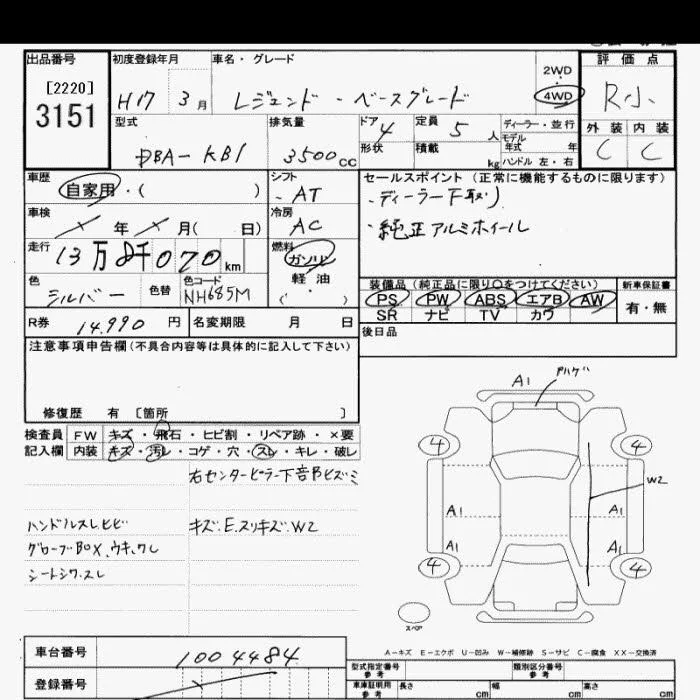 出品番号 初度登録年月 車名・グレード 2WD 評価点
[2220]
3151 H17 3月 レジェンド - ベースグレード 4WD R小
型式 排気量 ドア 4 定員 5人 ディーラー・並行 外装 内装
DBA-KB1 3500cc 形状 積載 kg モデル年式 年 C C
ハンドル 左・右
車歴 シフト セールスポイント (正常に機能するものに限ります)
自家用・( ) AT ・ディーラー下取り
車検 年 月( 日) 冷房 AC ・純正アルミホイール
走行 13万8千070km 燃料 ガソリン
軽油
( )
色 シルバー 色替 色コード NH685M 装備品 (純正品に限り○をつけてください) 新車保証書
PS PW ABS エアB AW 有・無
SR ナビ TV カワ
R券 14,990円 名変期限 月 日 後日品
注意事項申告欄 (不具合内容等は具体的に記入して下さい)
修復歴 有 [箇所 ]
検査員 FW キズ・飛石・ヒビ割・リペア跡・×要
記入欄 内装 キズ・汚レ・コゲ・穴・スレ・キレ・破レ
右センターピラー下音Bヒズミ
ハンドルスレヒビ キズ.E.スリキズ.W2
グローブBOX.ウキ.ワレ
シートシワ.スレ
A1
4 4
W2
A1 A1
A1 A1
4 4
スペア
A-キズ E-エクボ U-凹み W-補修跡 S-サビ C-腐食 XX-交換済
車台番号 1004484
登録番号
型式指定番号 参考 類別区分番号 参考
車庫証明用 参考 長さ cm 幅 cm 高さ cm